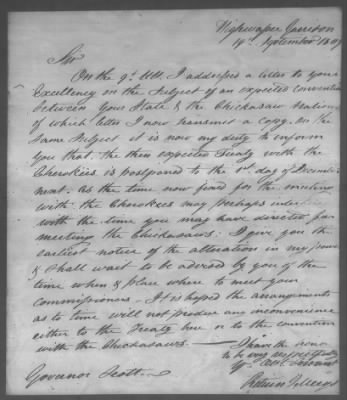 Highwassee Garrison
19th September 1807
Sir
On the 9th Ult. I addressed a letter to your
Excellency on the Subject of an expected convention
between Your State & the Chickasaw Nation
of which letter I now transmit a copy. On the
same Subject it is now my duty to inform
you that the then expected Treaty with the
Cherokees is postponed to the 1st day of December
next. As the time now fixed for the meeting
with the Cherokees may perhaps
with the time you may have directed for
meeting the Chickasaws: I give you the
earliest notice of the alteration in my power
& shall wait to be advised by you of the
time when & place where to meet your
Commissioners. It is hoped the arrangements
as to time will not produce any inconvenience
either to the Treaty here or to the convention
with the Chickasaws.
I have the honor
to be very respectfully
Return J. Meigs
Govenor